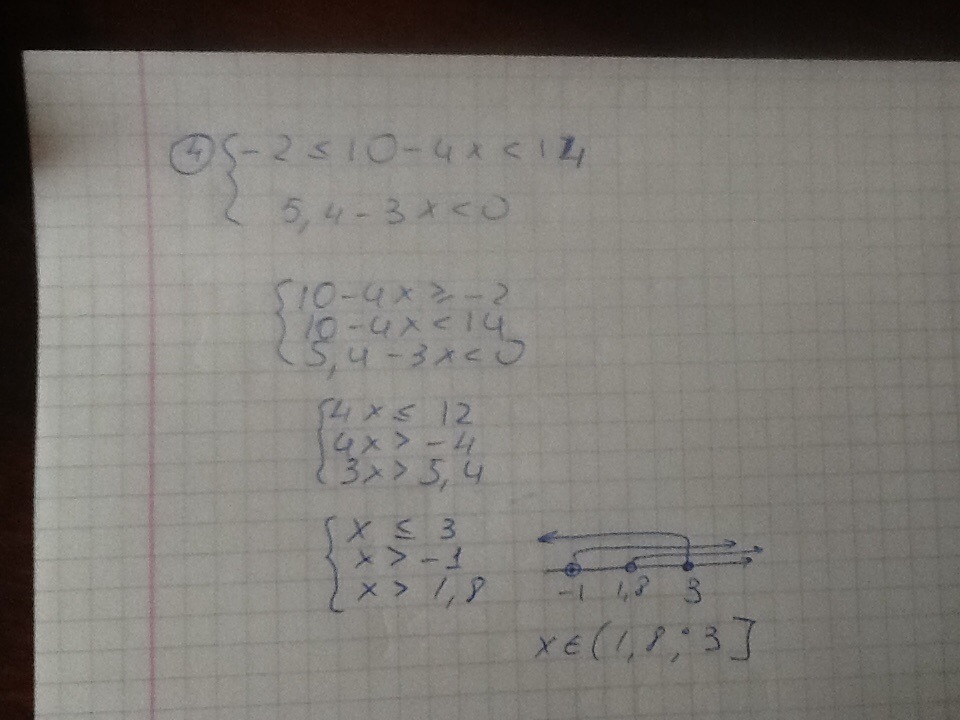 ④ { -2 ≤ 10 - 4x < 14
5,4 - 3x < 0
{ 10 - 4x ≥ -2
10 - 4x < 14
5,4 - 3x < 0
{ 4x ≤ 12
4x > -4
3x > 5,4
{ x ≤ 3
x > -1
x > 1,8
-1 1,8 3
x ∈ (1,8 ; 3]